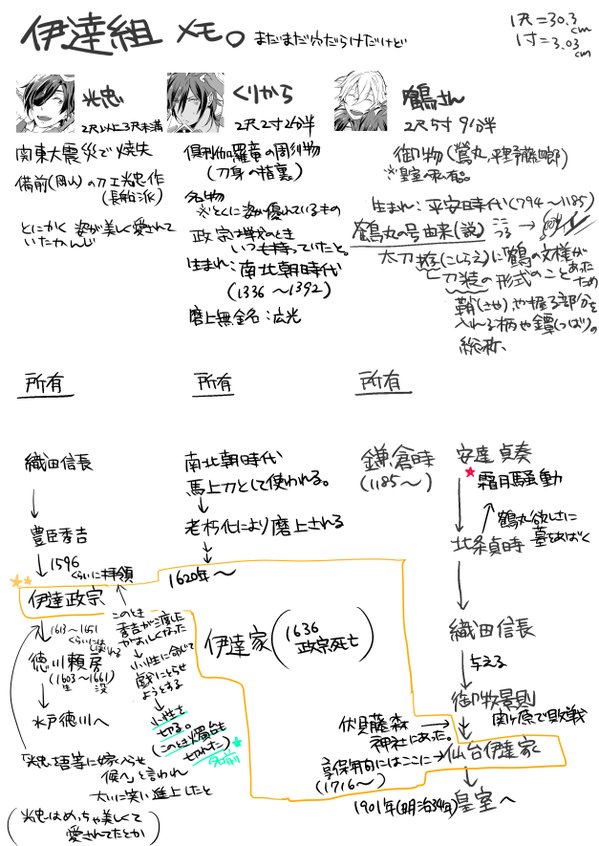 伊達組 メモ。 まだまだ穴だらけだけど
1尺=30.3cm
1寸=3.03cm
光忠
2尺以上3尺未満
関東大震災で焼失
備前(岡山)の刀工光忠作
(長船派)
とにかく姿が美しく愛されて
いたかんじ
くりから
2尺2寸2分半
倶利伽羅竜の彫刻物
(刀身の指裏)
名物
※とくに姿が優れているもの
政宗は戦のとき
いつも持っていたと。
生まれ:南北朝時代
(1336〜1392)
磨上無銘:広光
鶴さん
2尺5寸9分半
御物(鶯丸、平野藤四郎)
※皇室の私有。
生まれ:平安時代(794〜1185)
鶴丸の号由来(説)
ここ
つる
太刀拵(こしらえ)に鶴の文様が
あったため
刀装の形式のこと
鞘(さや)や握る部分を
入れる柄や鐔(つば)の
総称、
所有
織田信長
豊臣秀吉
1596
くらいに拝領
伊達政宗
1613〜1651
くらいには
徳川頼房
(1603〜1661)
生 没
水戸徳川へ
このとき
秀吉が渡した
小姓に命じて
とらせ
ようとする
小姓を
切る。
(このとき燭台も
切れた)
名前
候へと言われ
大いに笑い進上したと
(光忠はめっちゃ美しくて
愛されてたとか)
所有
南北朝時代
馬上刀として使われる。
老朽化により磨上される
1620年〜
伊達家(1636
政宗死亡)
所有
鎌倉時
(1185〜)
安達貞奏
霜月騒動
鶴丸欲しさに
墓をあばく
北条貞時
織田信長
与える
御牧景則
関ヶ原で敗戦
伏見藤森
神社にあった。
享保年間にはここに
(1716〜)
仙台伊達家
1901年(明治34年)
皇室へ